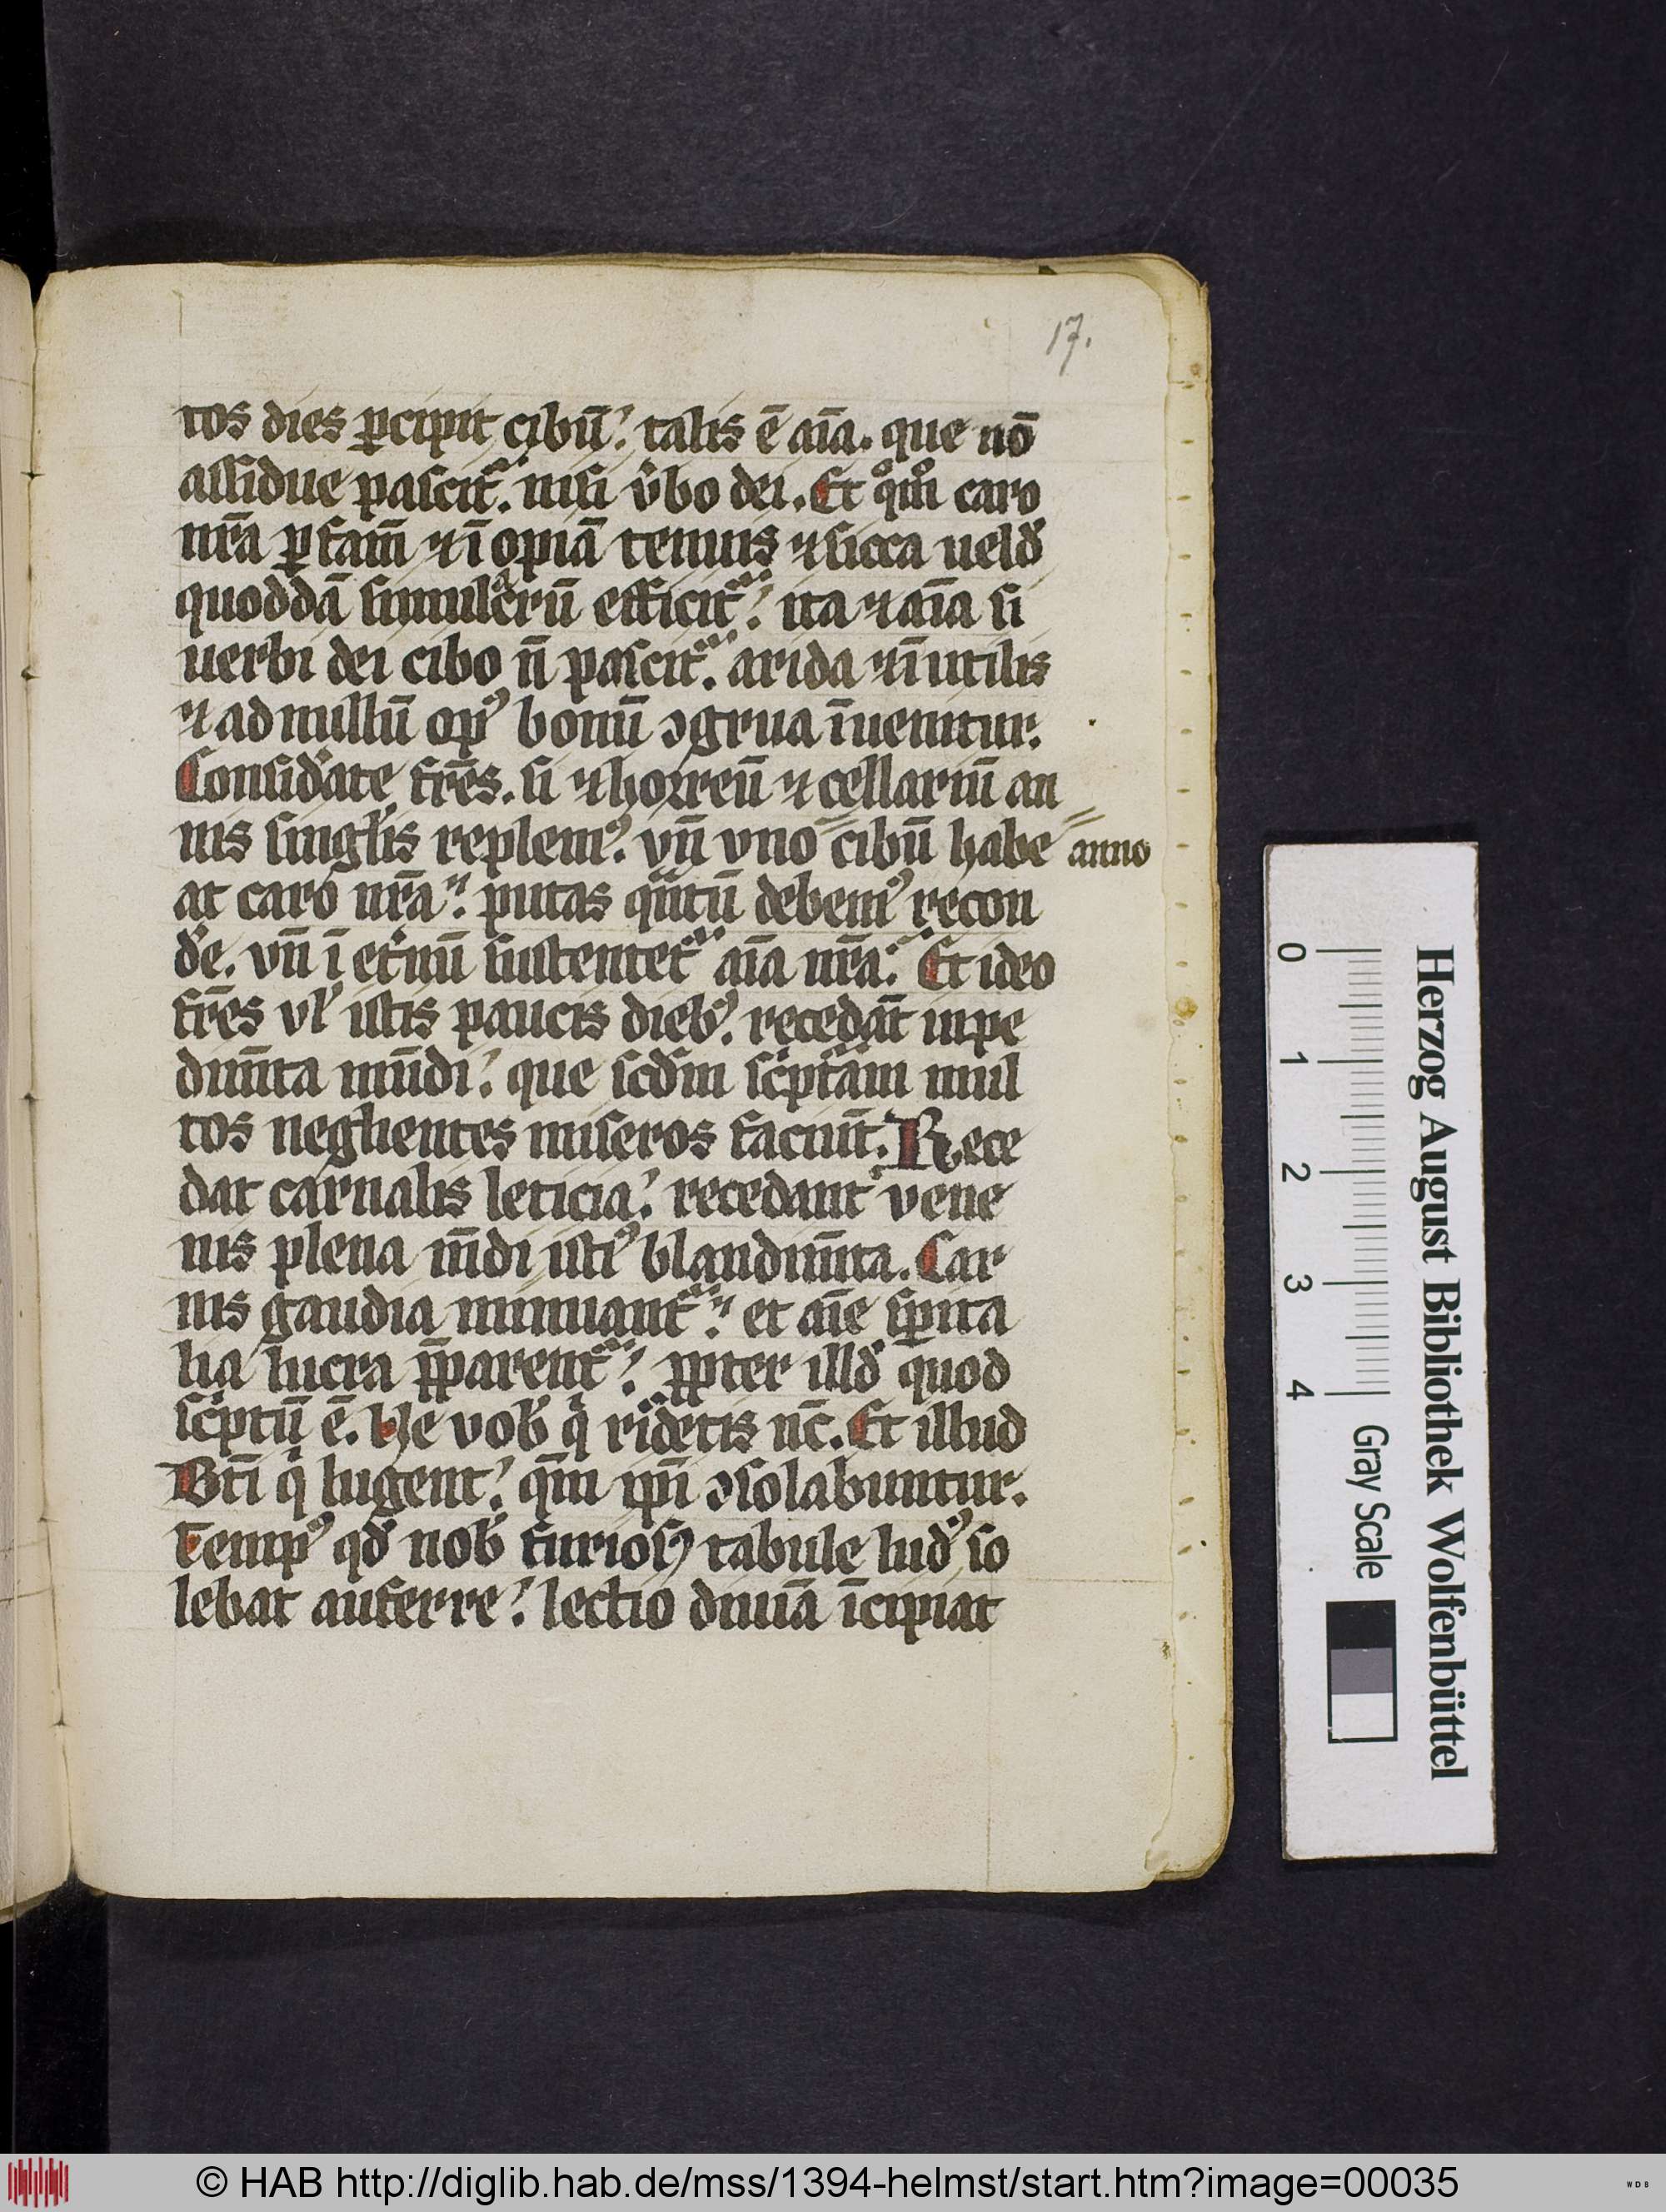 17.
tos dies ꝑcipit cibū. talis ē aīa. que nō
assidue pascit᷑. nisi v̾bo dei. Et qͦmͦ caro
nr̄a ꝑ famē ⁊ īopiā tenuis ⁊ sicca uelđ
quoddā simulacͣrū efficit᷑. ita ⁊ aīa si
uerbi dei cibo n̄ pascit᷑. arida ⁊ īutilis
⁊ ad nullū opꝰ bonū ꝯgrua īuenitur.
Consid̾ate fr̄es. si ⁊ horreū ⁊ cellariū an
nis singl̾is replemꝰ. vn̄ vno cibū habe anno
at caro nr̄a. putas qͣntū debemꝰ recon
d̾e. vn̄ ī et̾nū sustentet᷑ aīa nr̄a. Et ideo
fr̄es vl̾ istis paucis diebꝰ. recedāt inpe
dim̄ta mūdi. que scd̾m scͥptͣam mul
tos negligentes miseros faciūt. Rece
dat carnalis leticia. recedant vene
nis plena m̄di istiꝰ blandim̄ta. Car
nis gaudia minuant᷑. et aīe sp̄ūita
lia lucra p̄parent᷑. ꝓpter illđ quod
scͥptū ē. Ve vob̾ qͥ ridetis nc̄. Et illud
Bt̄i qͥ lugent. qm̄ ip̄i ꝯsolabuntur.
Tempꝰ qđ nob̾ furiosꝰ tabule ludꝰ so
lebat auferre. lectio diuīa īcipiat
Herzog August Bibliothek Wolfenbüttel
0 1 2 3 4 Gray Scale
© HAB http://diglib.hab.de/mss/1394-helmst/start.htm?image=00035
WDB